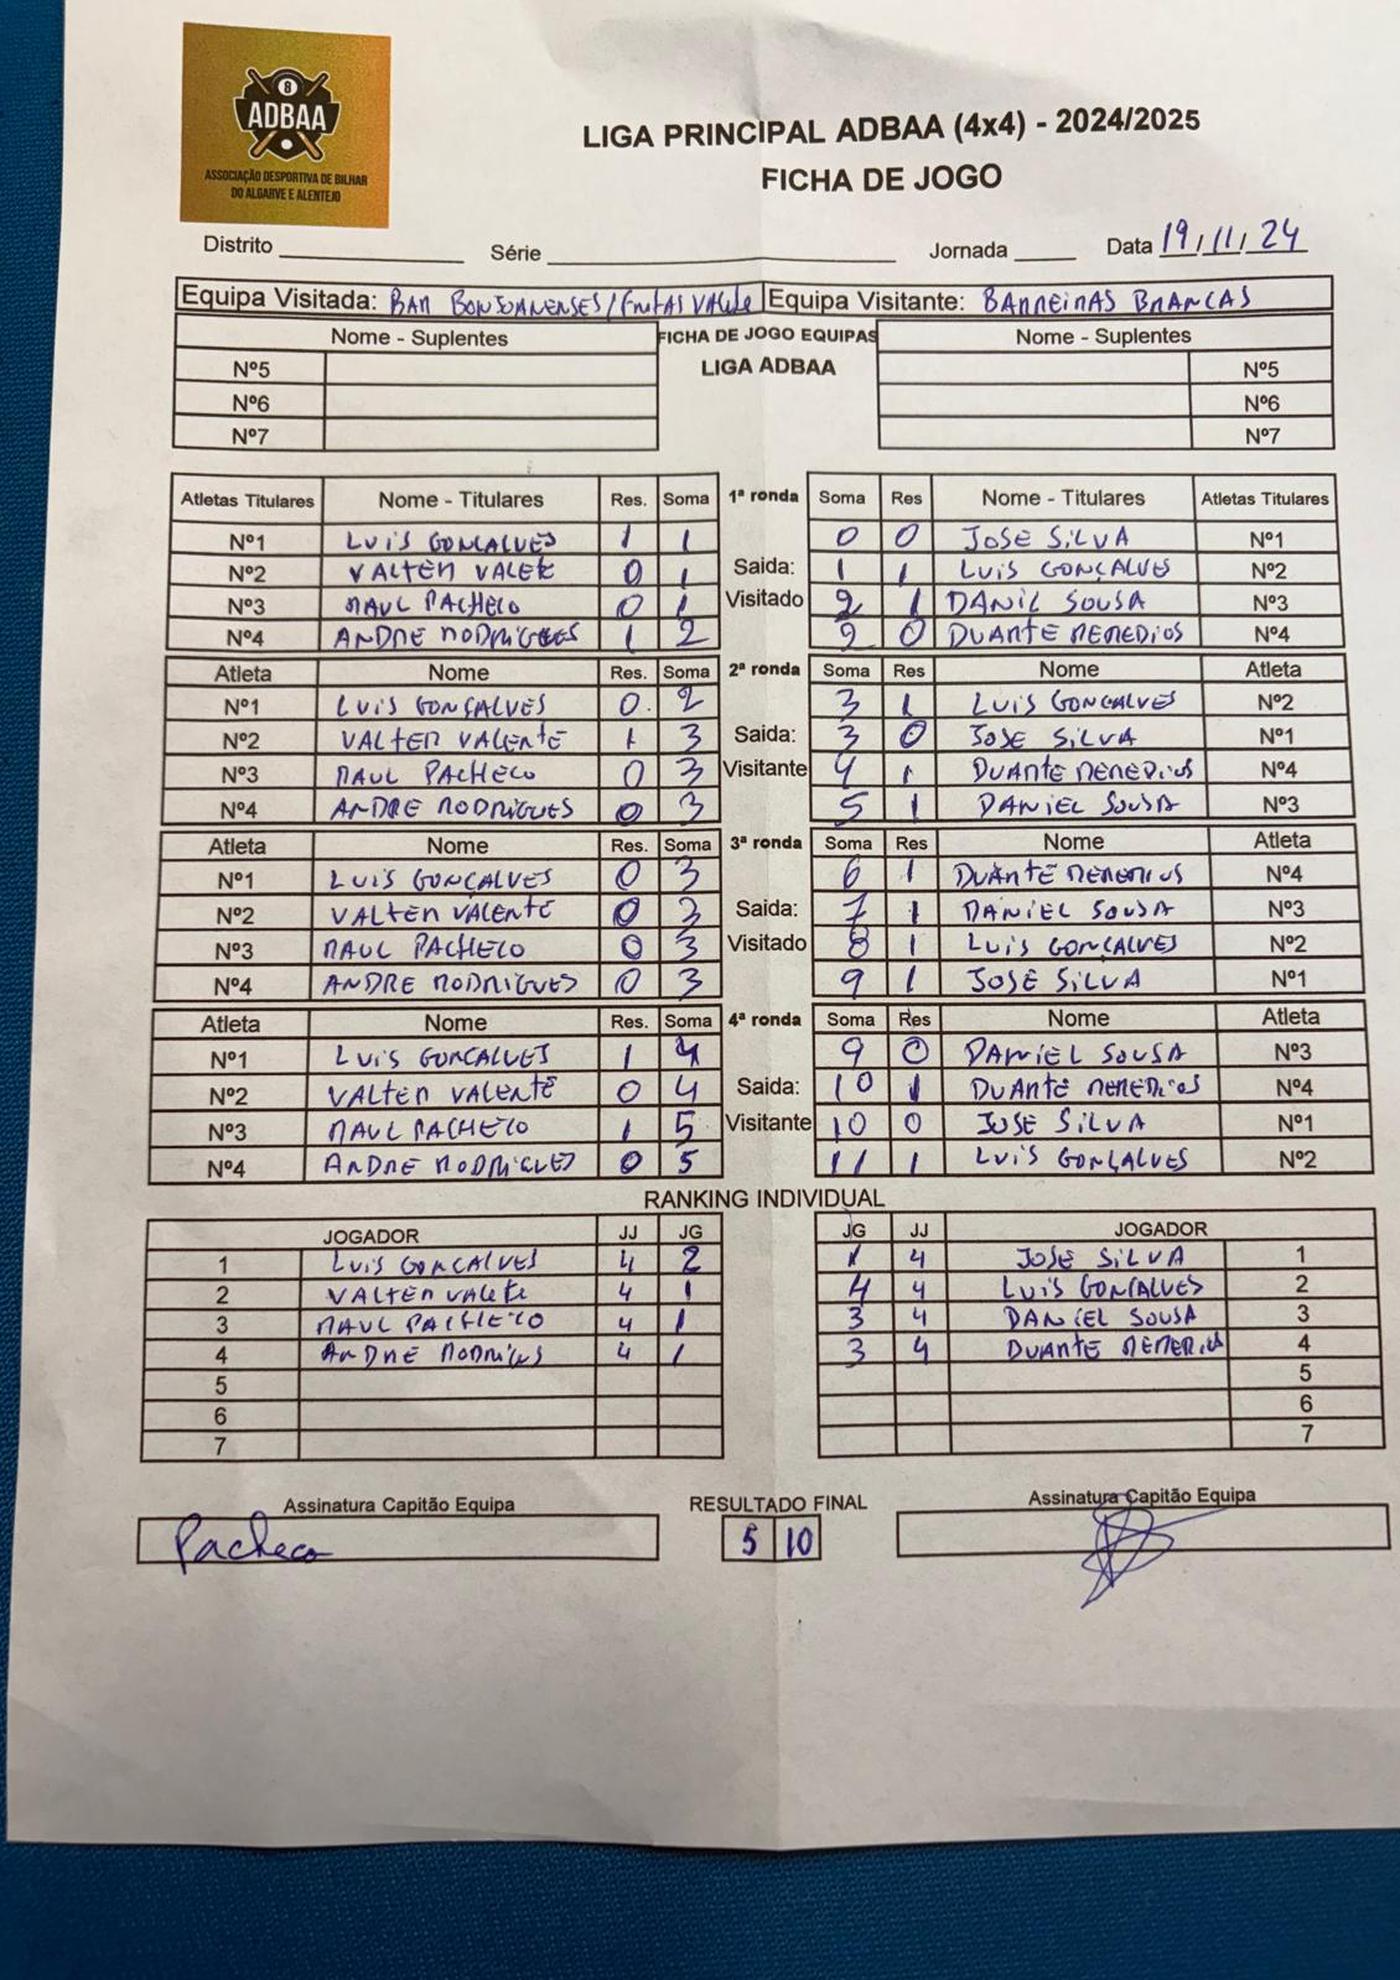 8
ADBAA
ASSOCIAÇÃO DESPORTIVA DE BILHAR
DO ALGARVE E ALENTEJO
LIGA PRINCIPAL ADBAA (4x4) - 2024/2025
FICHA DE JOGO
Distrito Série Jornada Data 19/11/24
Equipa Visitada: BAR BONJOANENSES/FRUTAS VALEte Equipa Visitante: BARREIRAS BRANCAS
Nome - Suplentes FICHA DE JOGO EQUIPAS Nome - Suplentes
Nº5 LIGA ADBAA Nº5
Nº6 Nº6
Nº7 Nº7
Atletas Titulares Nome - Titulares Res. Soma 1ª ronda Soma Res Nome - Titulares Atletas Titulares
Nº1 LUIS GONCALVES 1 1 0 0 JOSE SILVA Nº1
Nº2 VALTER VALETE 0 1 Saida: 1 1 LUIS GONÇALVES Nº2
Nº3 RAUL PACHECO 0 1 Visitado 2 1 DANIL SOUSA Nº3
Nº4 ANDRE RODRIGUES 1 2 2 0 DUARTE REMEDIOS Nº4
Atleta Nome Res. Soma 2ª ronda Soma Res Nome Atleta
Nº1 LUIS GONSALVES 0 2 3 1 LUIS GONCALVES Nº2
Nº2 VALTER VALENTE 1 3 Saida: 3 0 JOSE SILVA Nº1
Nº3 RAUL PACHECO 0 3 Visitante 4 1 DUARTE REMEDIOS Nº4
Nº4 ANDRE RODRIGUES 0 3 5 1 DANIEL SOUSA Nº3
Atleta Nome Res. Soma 3ª ronda Soma Res Nome Atleta
Nº1 LUIS GONÇALVES 0 3 6 1 DUARTE REMEDIOS Nº4
Nº2 VALTER VALENTE 0 3 Saida: 7 1 DANIEL SOUSA Nº3
Nº3 RAUL PACHECO 0 3 Visitado 8 1 LUIS GONÇALVES Nº2
Nº4 ANDRE RODRIGUES 0 3 9 1 JOSE SILVA Nº1
Atleta Nome Res. Soma 4ª ronda Soma Res Nome Atleta
Nº1 LUIS GONCALVES 1 4 9 0 DANIEL SOUSA Nº3
Nº2 VALTER VALENTE 0 4 Saida: 10 1 DUARTE REMEDIOS Nº4
Nº3 RAUL PACHECO 1 5 Visitante 10 0 JOSE SILVA Nº1
Nº4 ANDRE RODRIGUES 0 5 11 1 LUIS GONÇALVES Nº2
RANKING INDIVIDUAL
JOGADOR JJ JG JG JJ JOGADOR
1 LUIS GONCALVES 4 2 1 4 JOSE SILVA 1
2 VALTER VALETE 4 1 4 4 LUIS GONCALVES 2
3 RAUL PACHECO 4 1 3 4 DANIEL SOUSA 3
4 ANDRE RODRIGUES 4 1 3 4 DUARTE REMEDIOS 4
5 5
6 6
7 7
Assinatura Capitão Equipa RESULTADO FINAL Assinatura Capitão Equipa
Pacheco 5 10